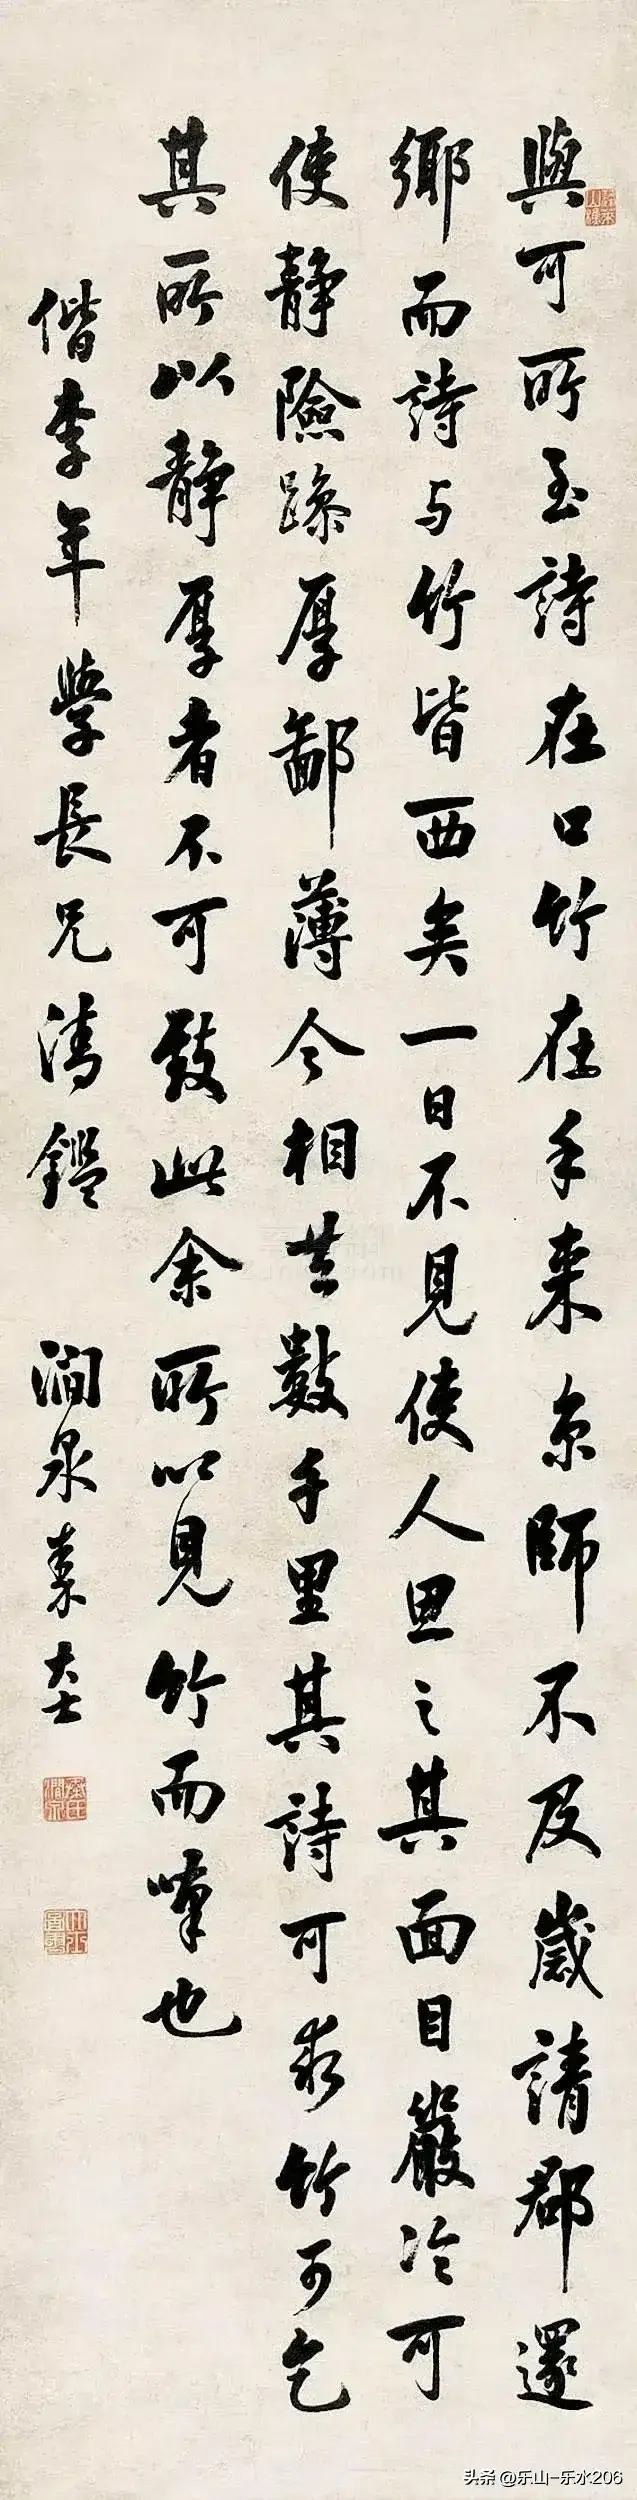 與可所至詩在口竹在手来京師不及歲請郡還
鄉而詩与竹皆西矣一日不見使人思之其面目嚴冷可
使静險躁厚鄙薄今相去數千里其詩可求竹可乞
其所以静厚者不可致此余所以見竹而嘆也
偕李年學長兄清鑑 澗泉秦大士
头条@乐山-乐水206